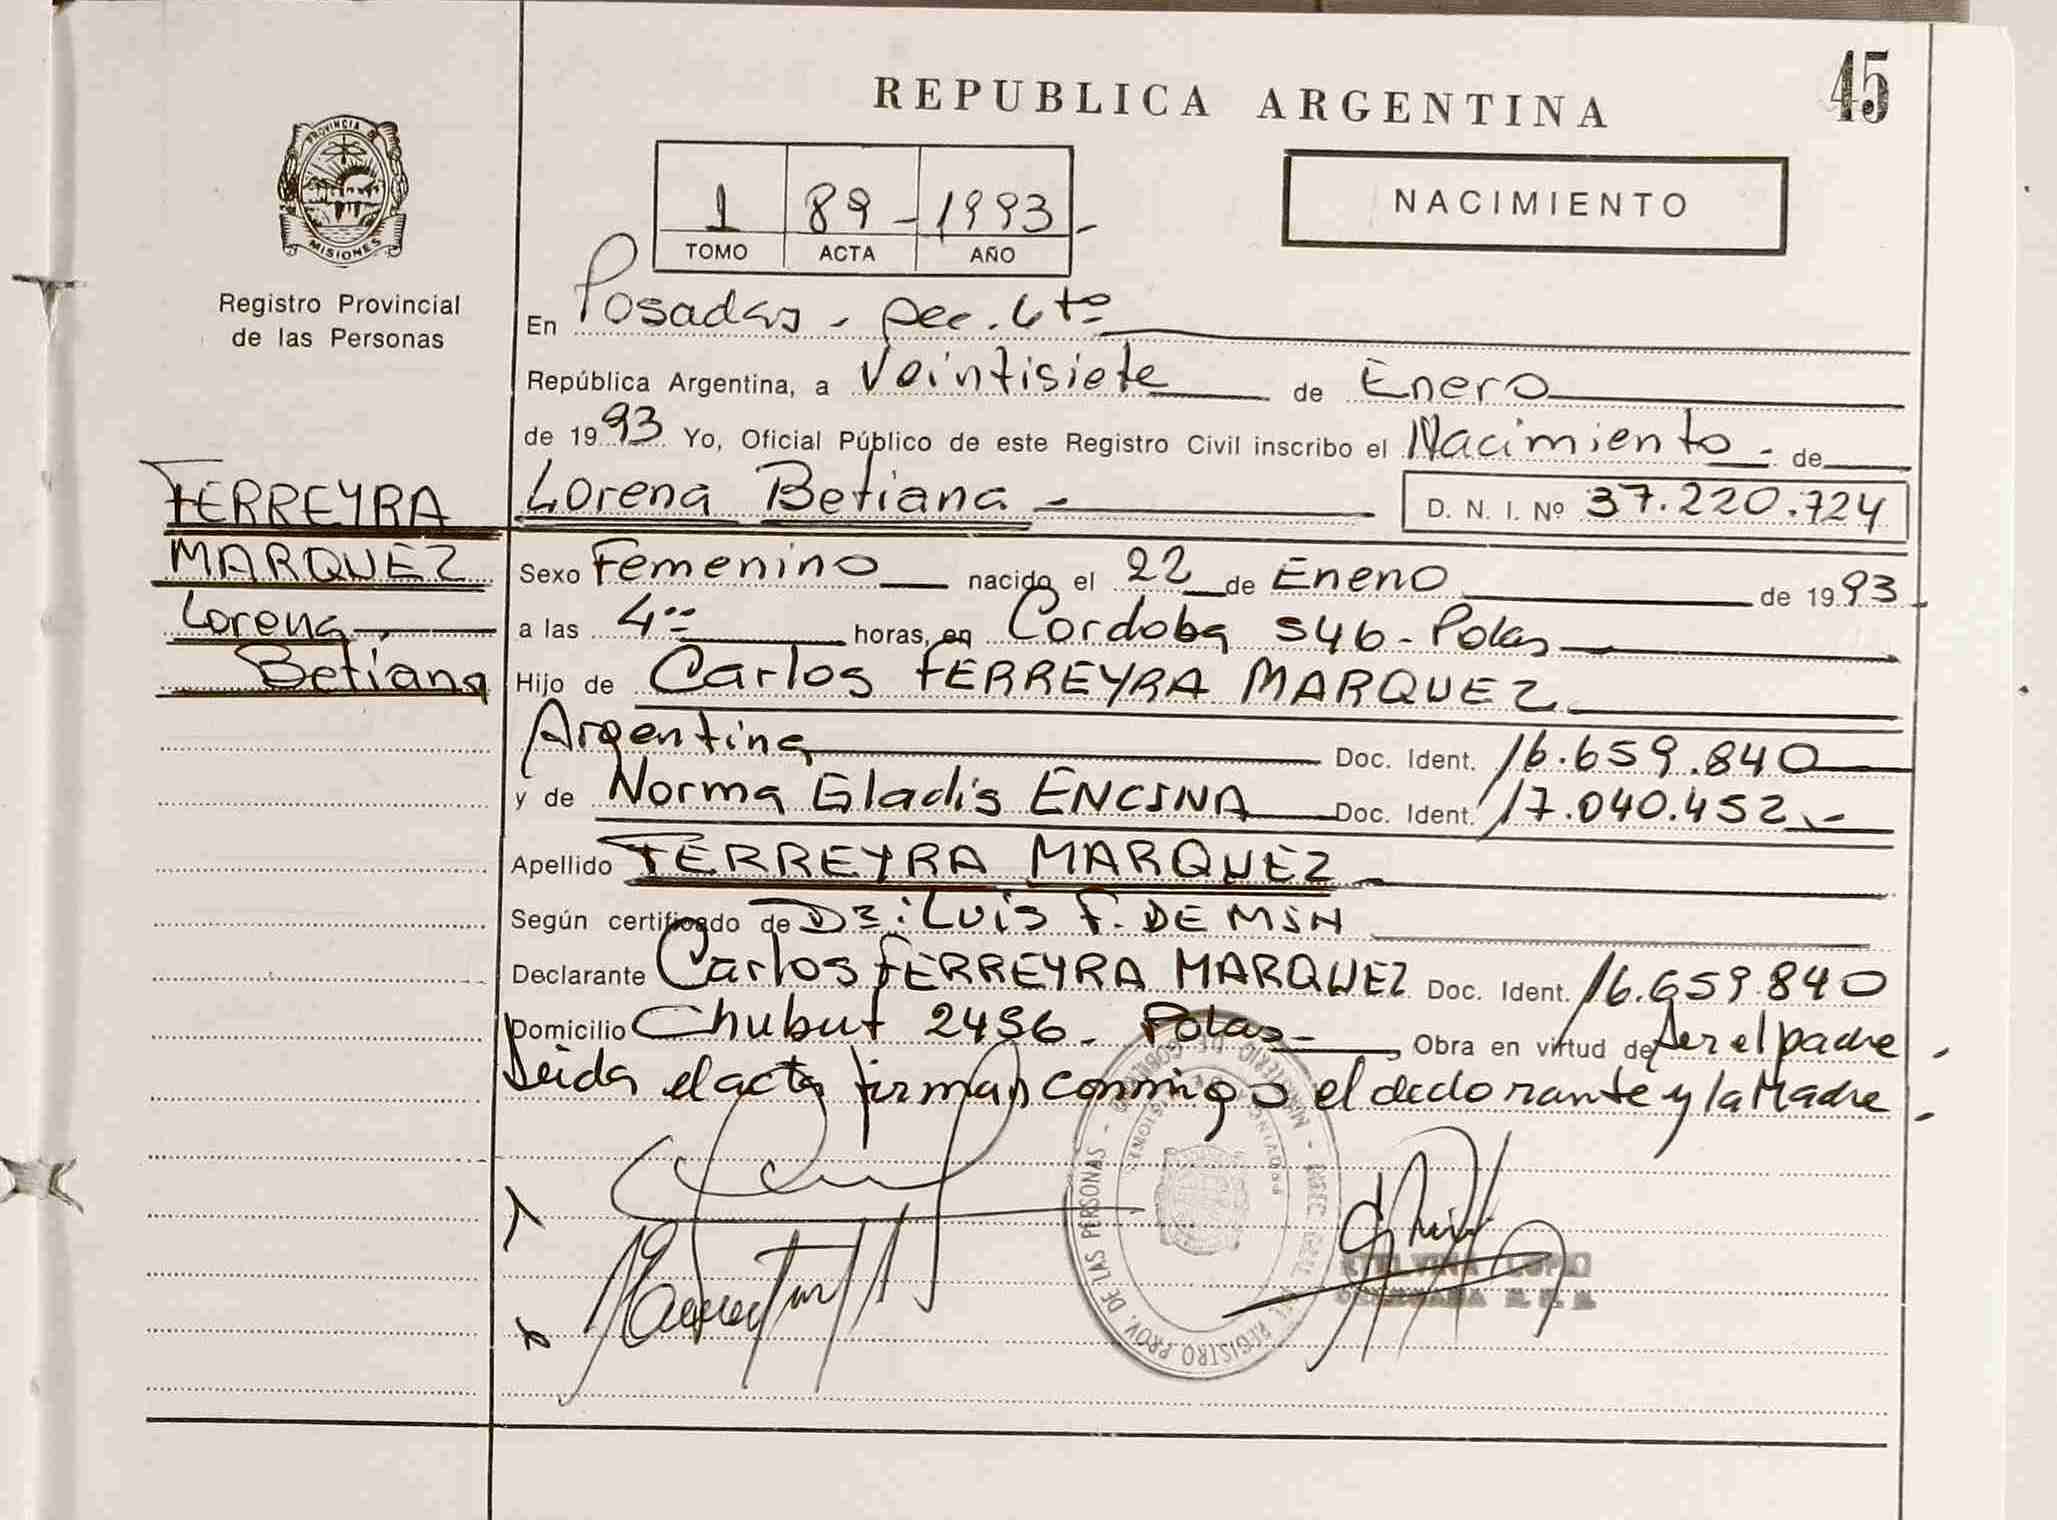 45
REPUBLICA ARGENTINA
PROVINCIA DE
MISIONES
Registro Provincial
de las Personas
1 89 - 1993 -
TOMO ACTA AÑO
NACIMIENTO
En Posadas - sec. 4to
República Argentina, a Veintisiete de Enero
de 1993 Yo, Oficial Público de este Registro Civil inscribo el Nacimiento - de
FERREYRA
MARQUEZ
Lorena
Betiana
Lorena Betiana - D. N. I. Nº 37.220.724
Sexo Femenino nacido el 22 de Enero de 1993
a las 4 horas, en Cordoba 546 - Pdas
Hijo de Carlos FERREYRA MARQUEZ
Argentina Doc. Ident. 16.659.840
y de Norma Gladis ENCINA Doc. Ident. 17.040.452.-
Apellido FERREYRA MARQUEZ
Según certificado de Dr: Luis F. DE
Declarante Carlos FERREYRA MARQUEZ Doc. Ident. 16.659.840
Domicilio Chubut 2456 - Pdas - , Obra en virtud de ser el padre
Leida el acta firman conmigo el declarante y la Madre
REGISTRO PROV. DE LAS PERSONAS - MINISTERIO DE